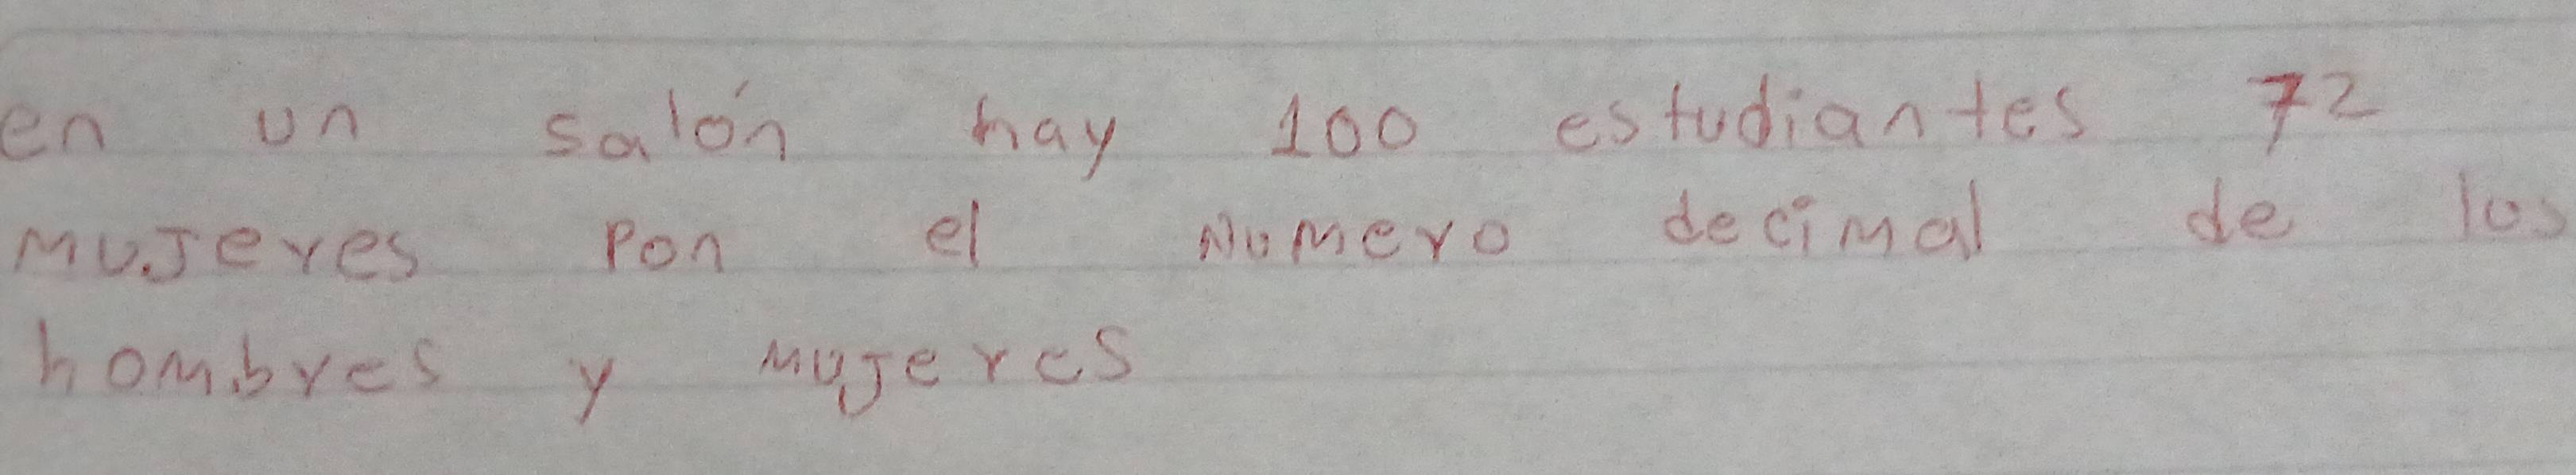 en un salón hay 100 estudiantes 72
mujeres Pon el Numero decimal de los
hombres y mujeres